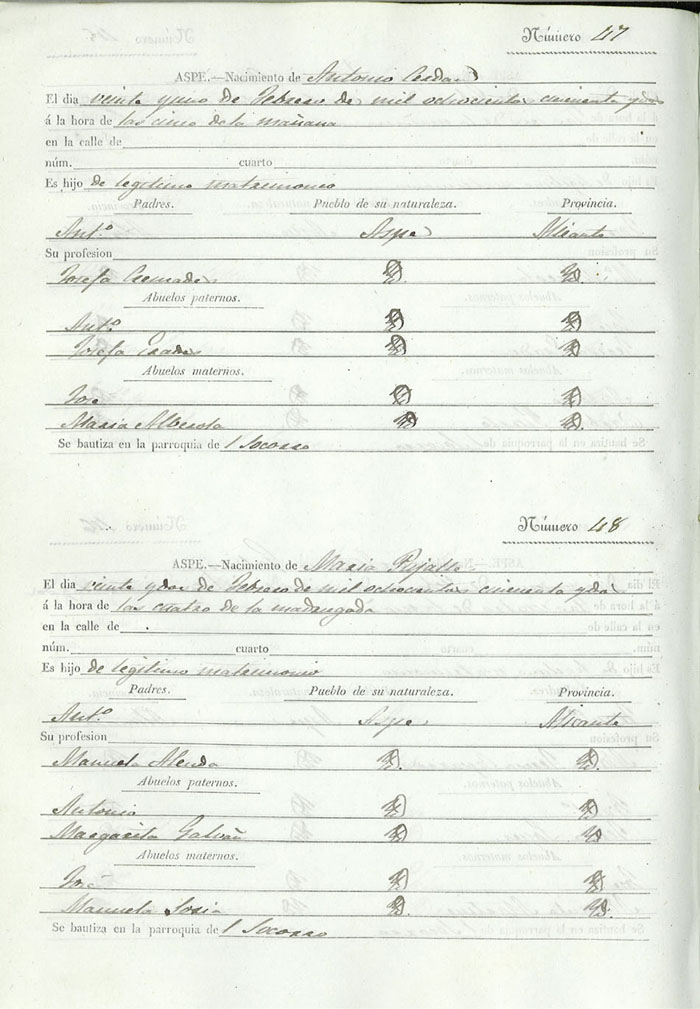 Número 47
ASPE.—Nacimiento de Antonio Cerdan
El dia veinte y uno de Febrero de mil ochocientos cincuenta y dos
á la hora de las cinco de la mañana
en la calle de
núm. cuarto
Es hijo de legitimo matrimonio
Padres. Pueblo de su naturaleza. Provincia.
Ant.º Aspe Alicante
Su profesion
Josefa Cremades
Abuelos paternos.
Ant.º
Josefa
Abuelos maternos.
José
Maria Alberola
Se bautiza en la parroquia de l Socorro
Número 48
ASPE.—Nacimiento de Maria Pujalte
El dia veinte y dos de Febrero de mil ochocientos cincuenta y dos
á la hora de las cuatro de la madrugada
en la calle de
núm. cuarto
Es hijo de legitimo matrimonio
Padres. Pueblo de su naturaleza. Provincia.
Ant.º Aspe Alicante
Su profesion
Manuela Alenda
Abuelos paternos.
Antonio
Margarita Galvañ
Abuelos maternos.
José
Manuela Soria
Se bautiza en la parroquia de l Socorro